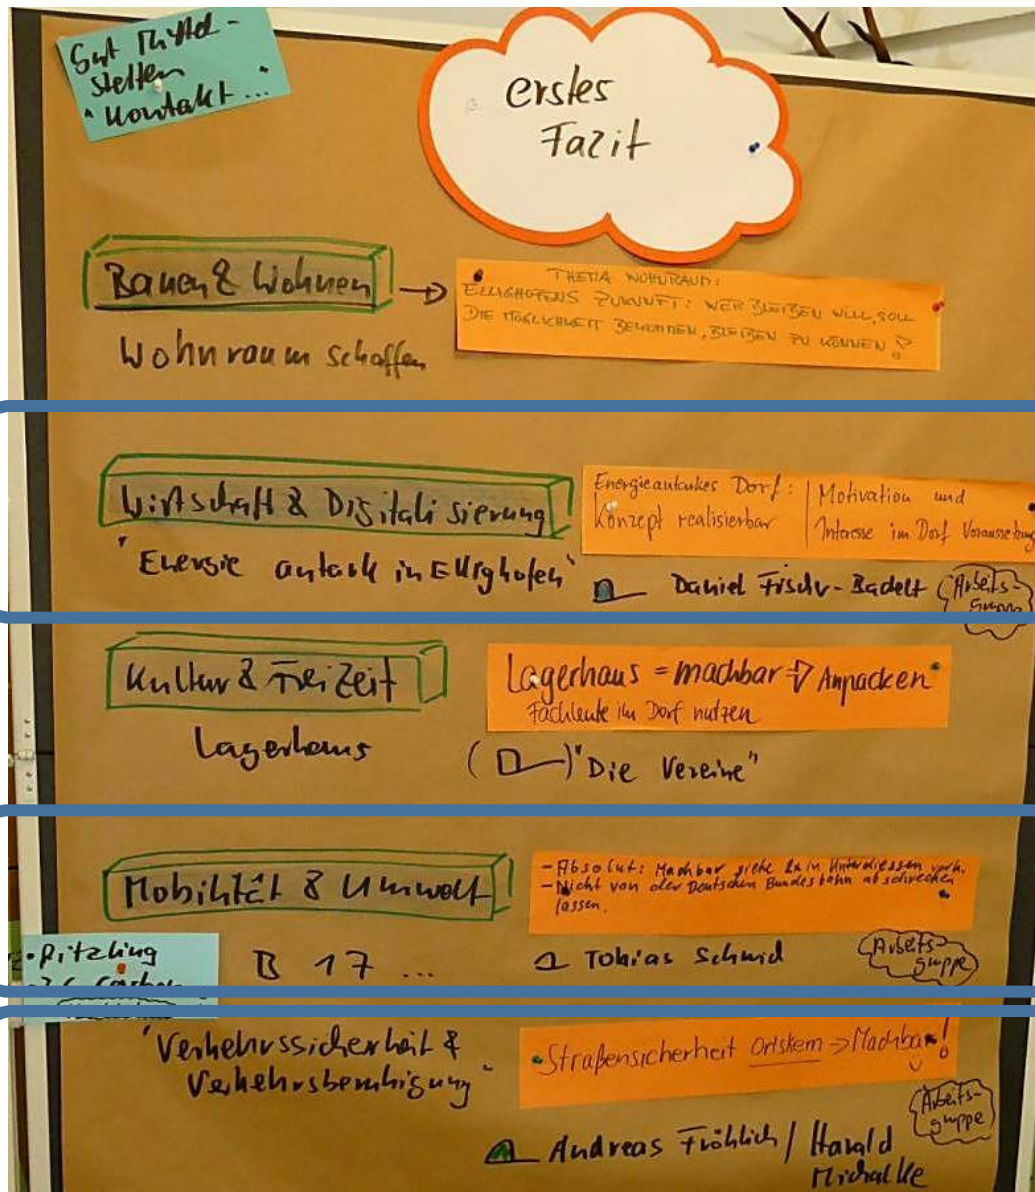 Gut Mittel-
stetten
Kontakt...
erstes
Fazit
Bauen & Wohnen
THEMA WOHNRAUM:
ELLIGHOFENS ZUKUNFT: WER BLEIBEN WILL, SOLL
DIE MÖGLICHKEIT BEKOMMEN, BLEIBEN ZU KÖNNEN!
Wohnraum schaffen
Wirtschaft & Digitalisierung
Energieautarkes Dorf:
Konzept realisierbar
Motivation und
Interesse im Dorf Voraussetzung
"Energie autark in Ellighofen"
Daniel Fischer-Badelt
Arbeits-
gruppe
Kultur & Freizeit
Lagerhaus = machbar → Anpacken
Fachleute im Dorf nutzen
Lagerhaus
( ) "Die Vereine"
Mobilität & Umwelt
- Absolut: Machbar siehe in Unterdiessen
- Nicht von der Deutschen Bundesbahn abschrecken
lassen.
• Pitzling
B 17 ...
Tobias Schmid
Arbeits-
gruppe
"Verkehrssicherheit &
Verkehrsberuhigung"
Straßensicherheit Ortskern → Machbar!
Arbeits-
gruppe
Andreas Fröhlich / Harald
Michalke